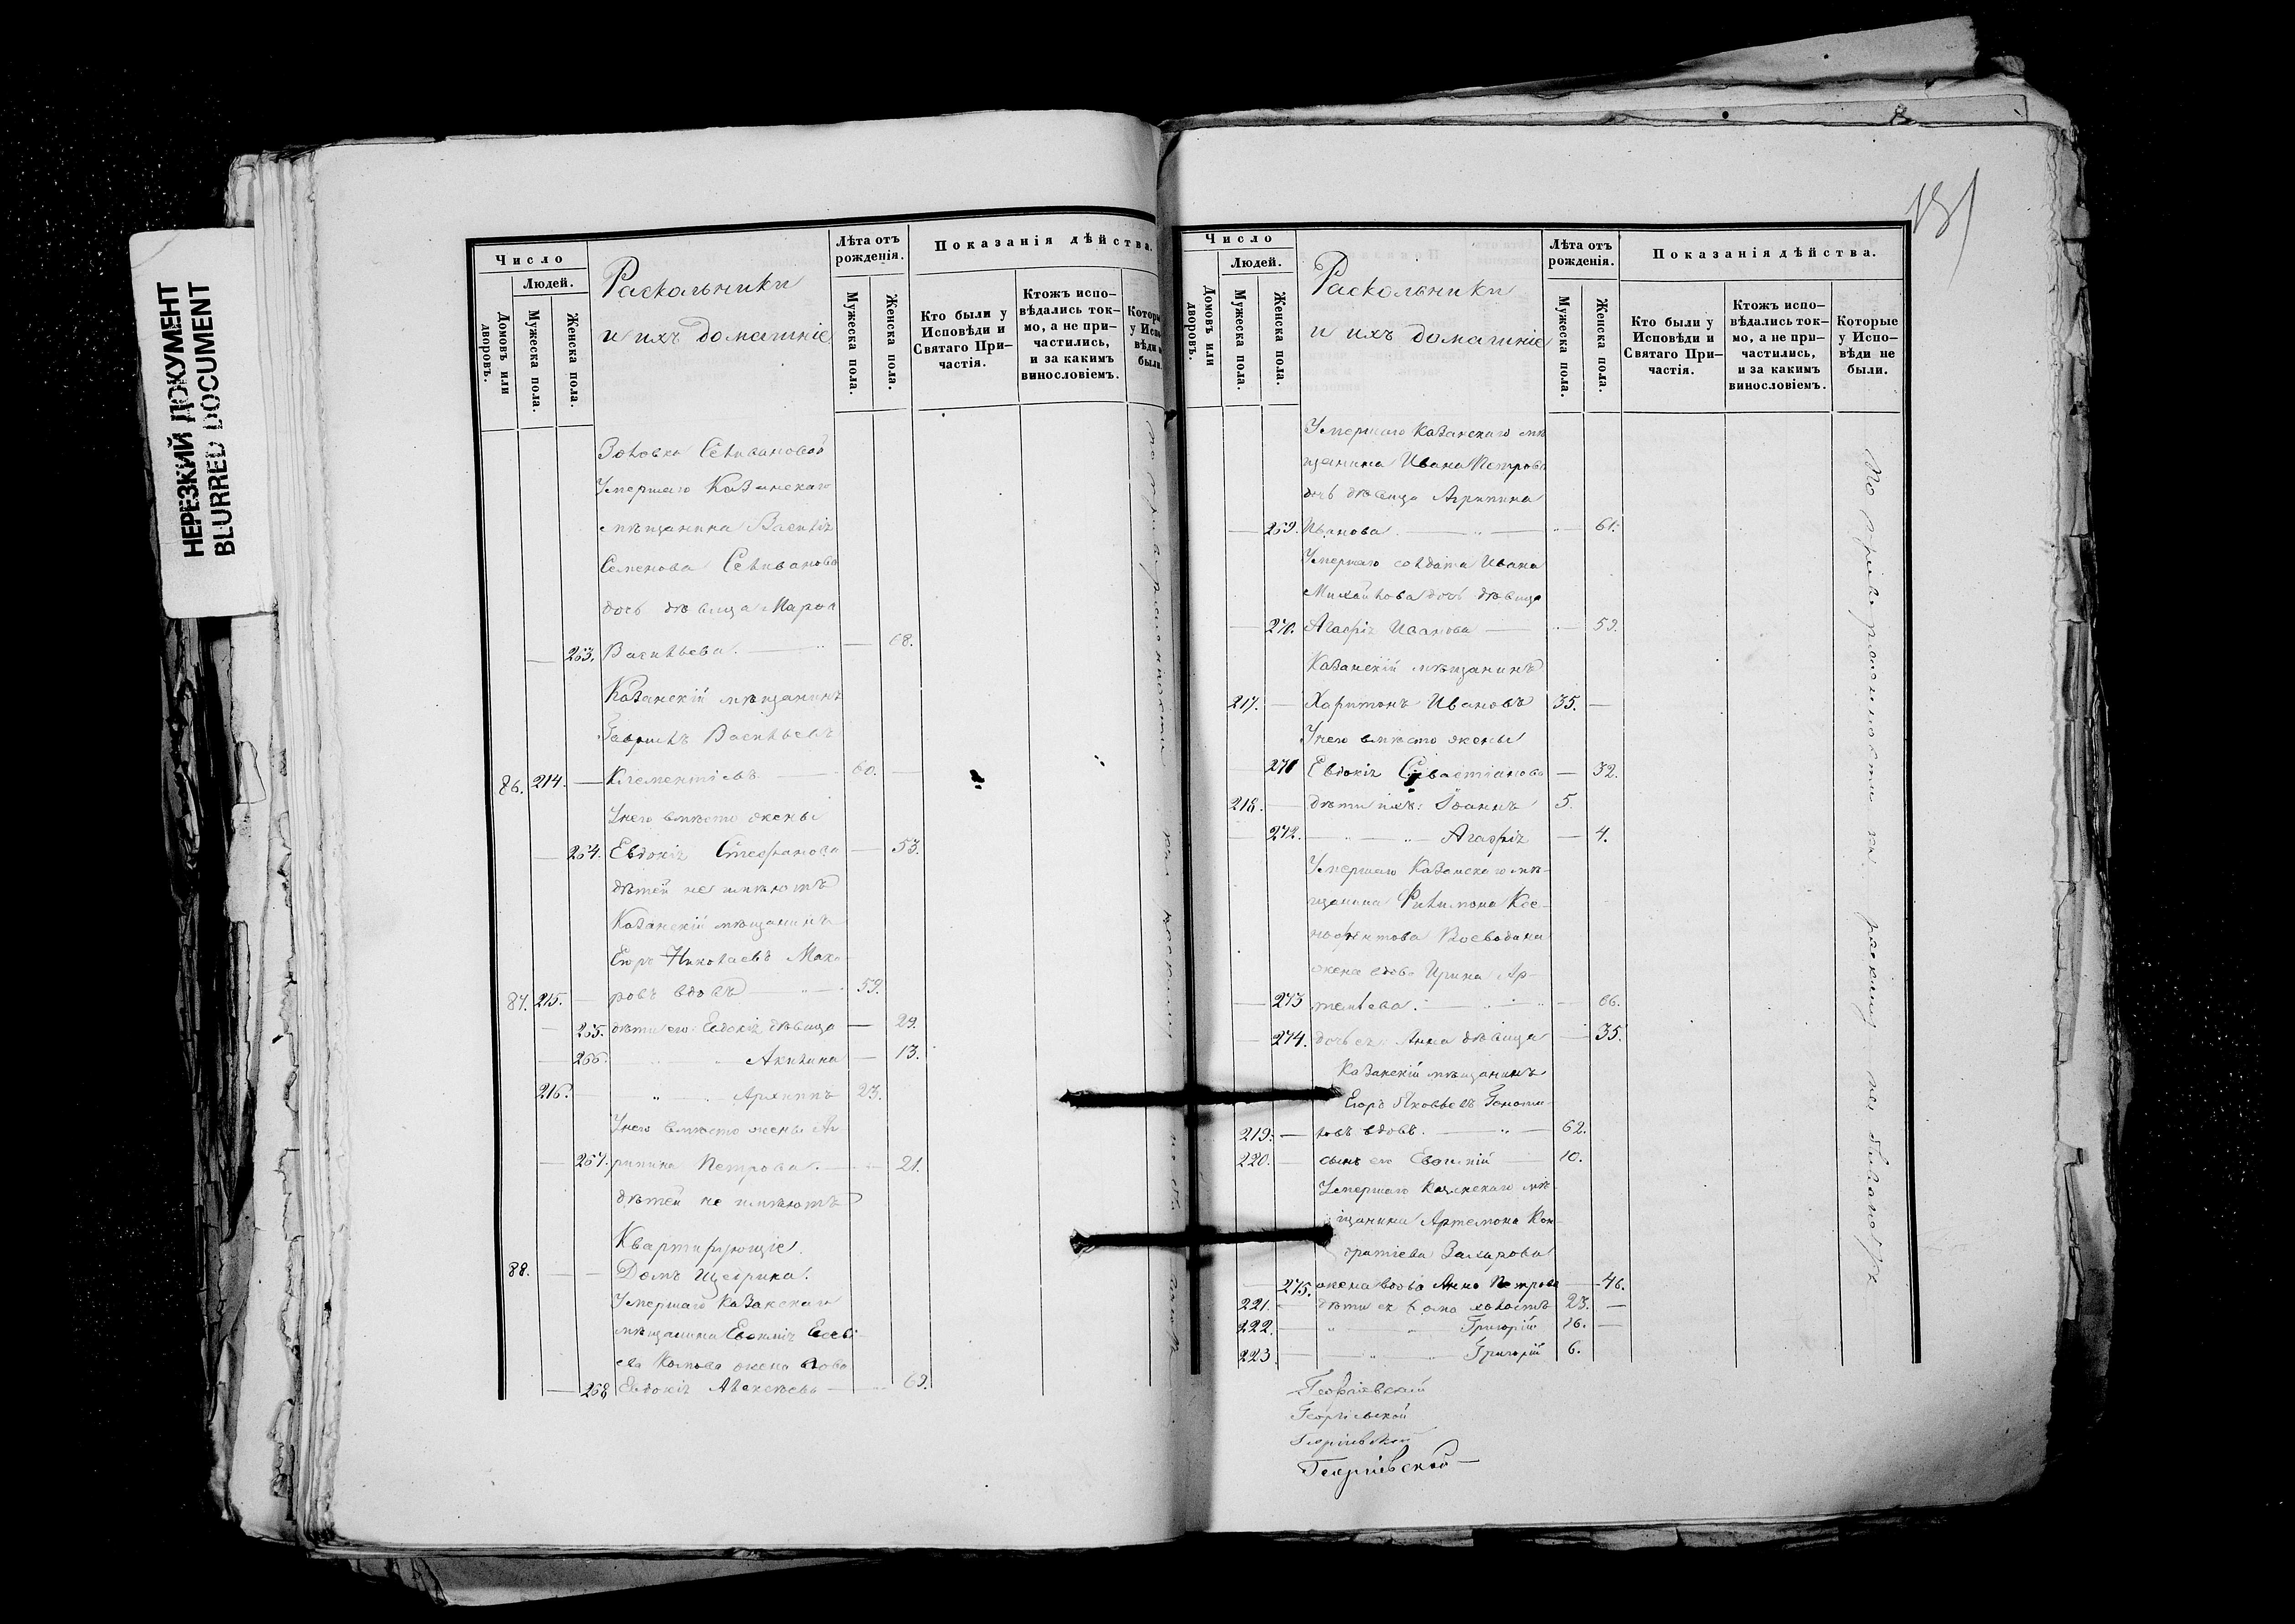 НЕРЕЗКИЙ ДОКУМЕНТ
BLURRED DOCUMENT
Число
Людей.
Домовъ или дворовъ.
Мужеска пола.
Женска пола.
Раскольники
и ихъ домашніе
Лѣта отъ рожденія.
Мужеска пола
Женска пола.
Показанія дѣйства.
Кто были у Исповѣди и Святаго При-частія.
Ктожъ испо-вѣдались ток-мо, а не при-частились, и за какимъ винословіемъ.
Умершаго Казанскаго
мѣщанина Василія
Семенова Селиванова
дочь дѣвица Марѳа
253. Васильева. — 68.
Казанскій мѣщанинъ
Гавріилъ Васильевъ
86. 214. — Клементіевъ — 60. —
У него вмѣсто жены
264. Евдокія Стефанова — 53.
дѣтей не имѣютъ
Казанскій мѣщанинъ
Егоръ Николаевъ Мака-
87. 215. — ровъ вдовъ — 59.
265. дѣти его: Евдокія дѣвица — 29.
266. Акилина — 13.
216. — Архипъ 23.
У него вмѣсто жены Аг-
267. рипина Петрова. — 21.
дѣтей не имѣютъ
Квартирующіе.
88. — — Домъ Щедрина.
Умершаго Казанскаго
мѣщанина
жена вдова
268 Евдокія Алексѣева — 69.
131
Число
Людей.
Домовъ или дворовъ.
Мужеска пола.
Женска пола.
Раскольники
и ихъ домашніе
Лѣта отъ рожденія.
Мужеска пола.
Женска пола.
Показанія дѣйства.
Кто были у Исповѣди и Святаго При-частія.
Ктожъ испо-вѣдались ток-мо, а не при-частились, и за какимъ винословіемъ.
Которые у Испо-вѣди не были.
Умершаго Казанскаго мѣ
щанина Ивана Петрова
дочь дѣвица Агрипина
— 269. Иванова. — 61.
Умершаго солдата Ивана
Михайлова дочь дѣвица
— 270. Агафія Иванова — 59.
Казанскій мѣщанинъ
217. — Харитонъ Ивановъ 35. —
У него вмѣсто жены
— 271 Евдокія Савастіанова — 32.
218. — дѣти ихъ: Іоаннъ 5.
— 272. Агафія — 4.
Умершаго Казанскаго мѣ-
щанина Филимона Ксе-
нофонтова Воеводина
жена вдова Ирина Ар-
— 273 темьева. — 66.
— 274. дочь ея: Анна дѣвица — 35.
Казанскій мѣщанинъ
Егоръ Яковлевъ
219. — ловъ вдовъ. — 62.
220. — сынъ его Евфимій — 10.
Умершаго Казанскаго мѣ-
щанина Артемона Кон-
дратіева Захарова
— 275. жена вдова Анна Петрова — 46.
221. — дѣти ея Ѳома холостъ 23. —
222. — Григорій 16. —
223 — Григорій 6.
Георгіевскій
Георгіевской
Георгіевской
Георгіевской —